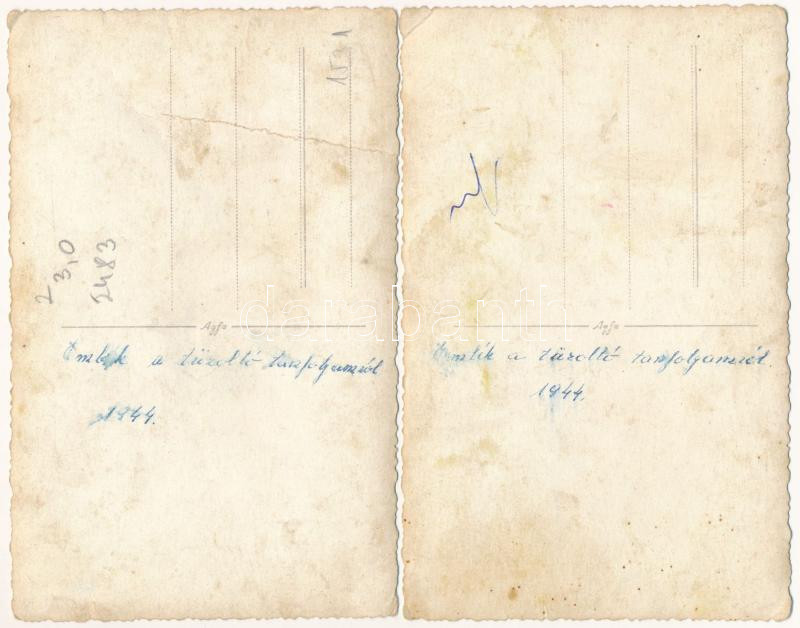 1531
2
3,0
2483
Agfa
Emlék a tüzoltó tanfolyamról
1944.
Agfa
Emlék a tüzoltó tanfolyamról.
1944.
darabanth